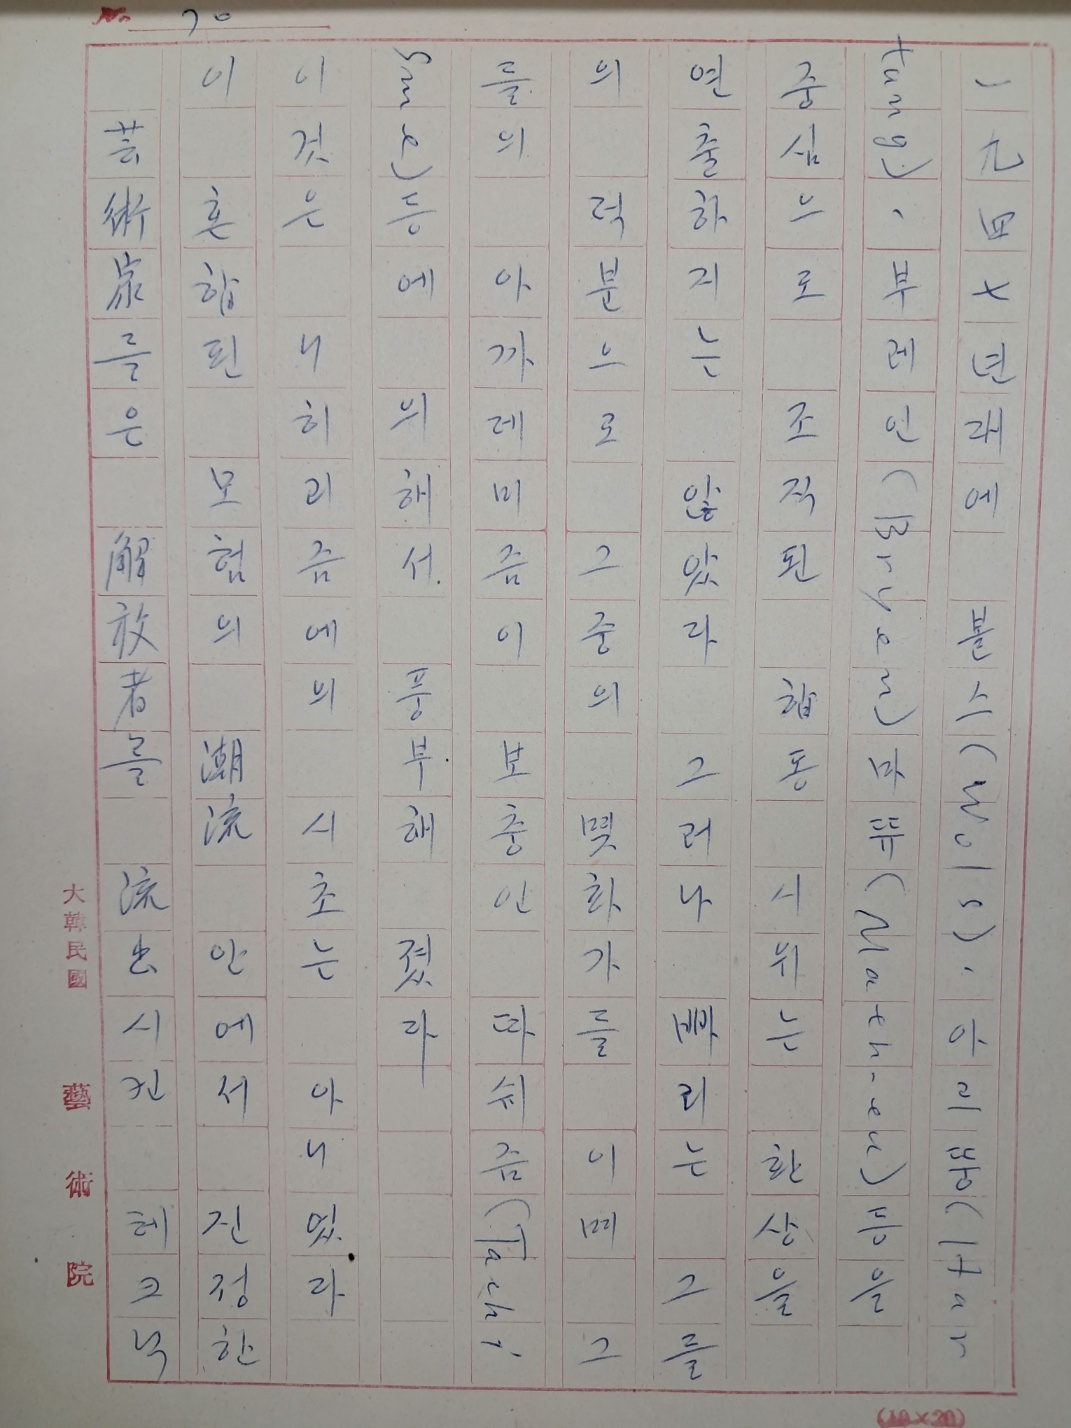 No. 70
一九四七년래에 볼스(Wols)、아르뚱(Har
tung)、부레인(Bryen)마뜌(Mathieu)등을
중심으로 조직된 합동 시위는 환상을
연출하지는 않았라 그러나 빠리는 그들
의 덕분으로 그중의 몇화가들이며 그
들의 아까데미즘이 보충인 따쉬즘(Tachi
sme)등에 의해서 풍부해졌라
이것은 니히리즘에의 시초는 아니였라
이 혼합된 모험의 潮流 안에서 진정한
芸術家를은 解放者를 流出시킨 테크닉
大韓民國 藝術院
(10×20)